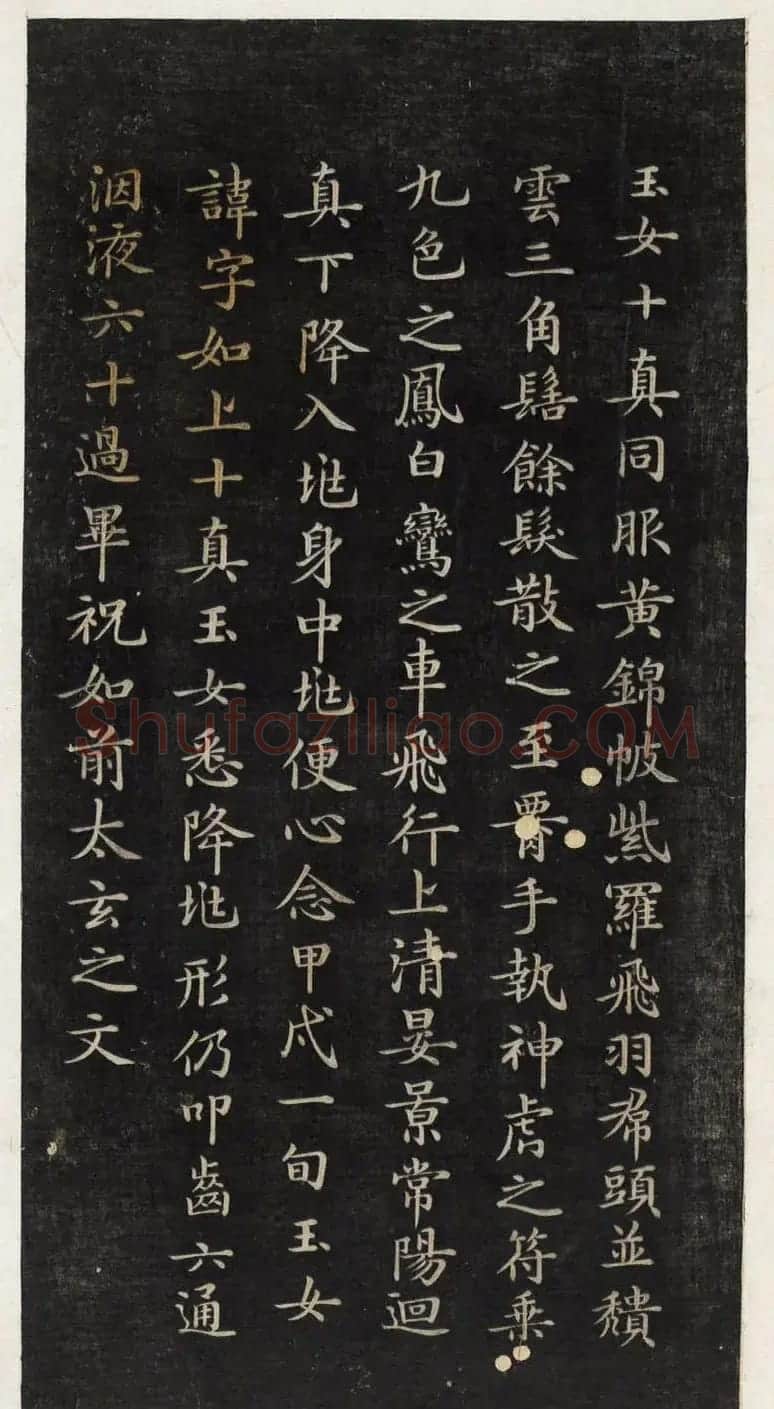 玉女十真同服黄錦帔紫羅飛羽帬頭並頹
雲三角髻餘髮散之至署手執神虎之符乗
九色之鳳白鸞之車飛行上清晏景常陽迴
真下降入兆身中兆便心念甲戌一旬玉女
諱字如上十真玉女悉降兆形仍叩齒六通
洇液六十過畢祝如前太玄之文
Shufaziliao.COM